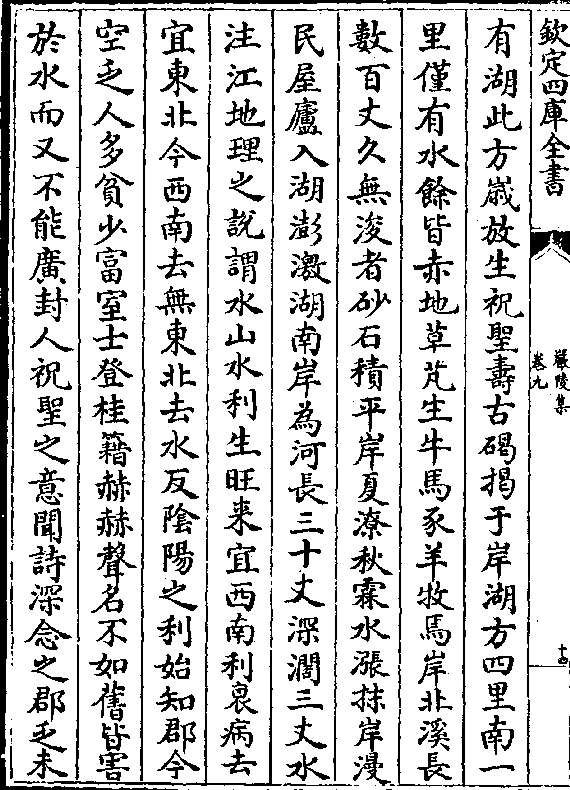 欽定四庫全書
嚴陵集
卷九
十四
有湖此方嵗放生祝聖壽古碣揭于岸湖方四里南一
里僅有水餘皆赤地草芃生牛馬豕羊牧馬岸北溪長
數百丈久無浚者砂石積平岸夏潦秋霖水漲抹岸漫
民屋廬入湖澎激湖南岸為河長三十丈深濶三丈水
注江地理之說謂水山水利生旺来宜西南利衰病去
宜東北今西南去無東北去水反陰陽之利始知郡今
空乏人多貧少富室士登桂籍赫赫聲名不如舊皆害
於水而又不能廣封人祝聖之意聞詩深念之郡乏未